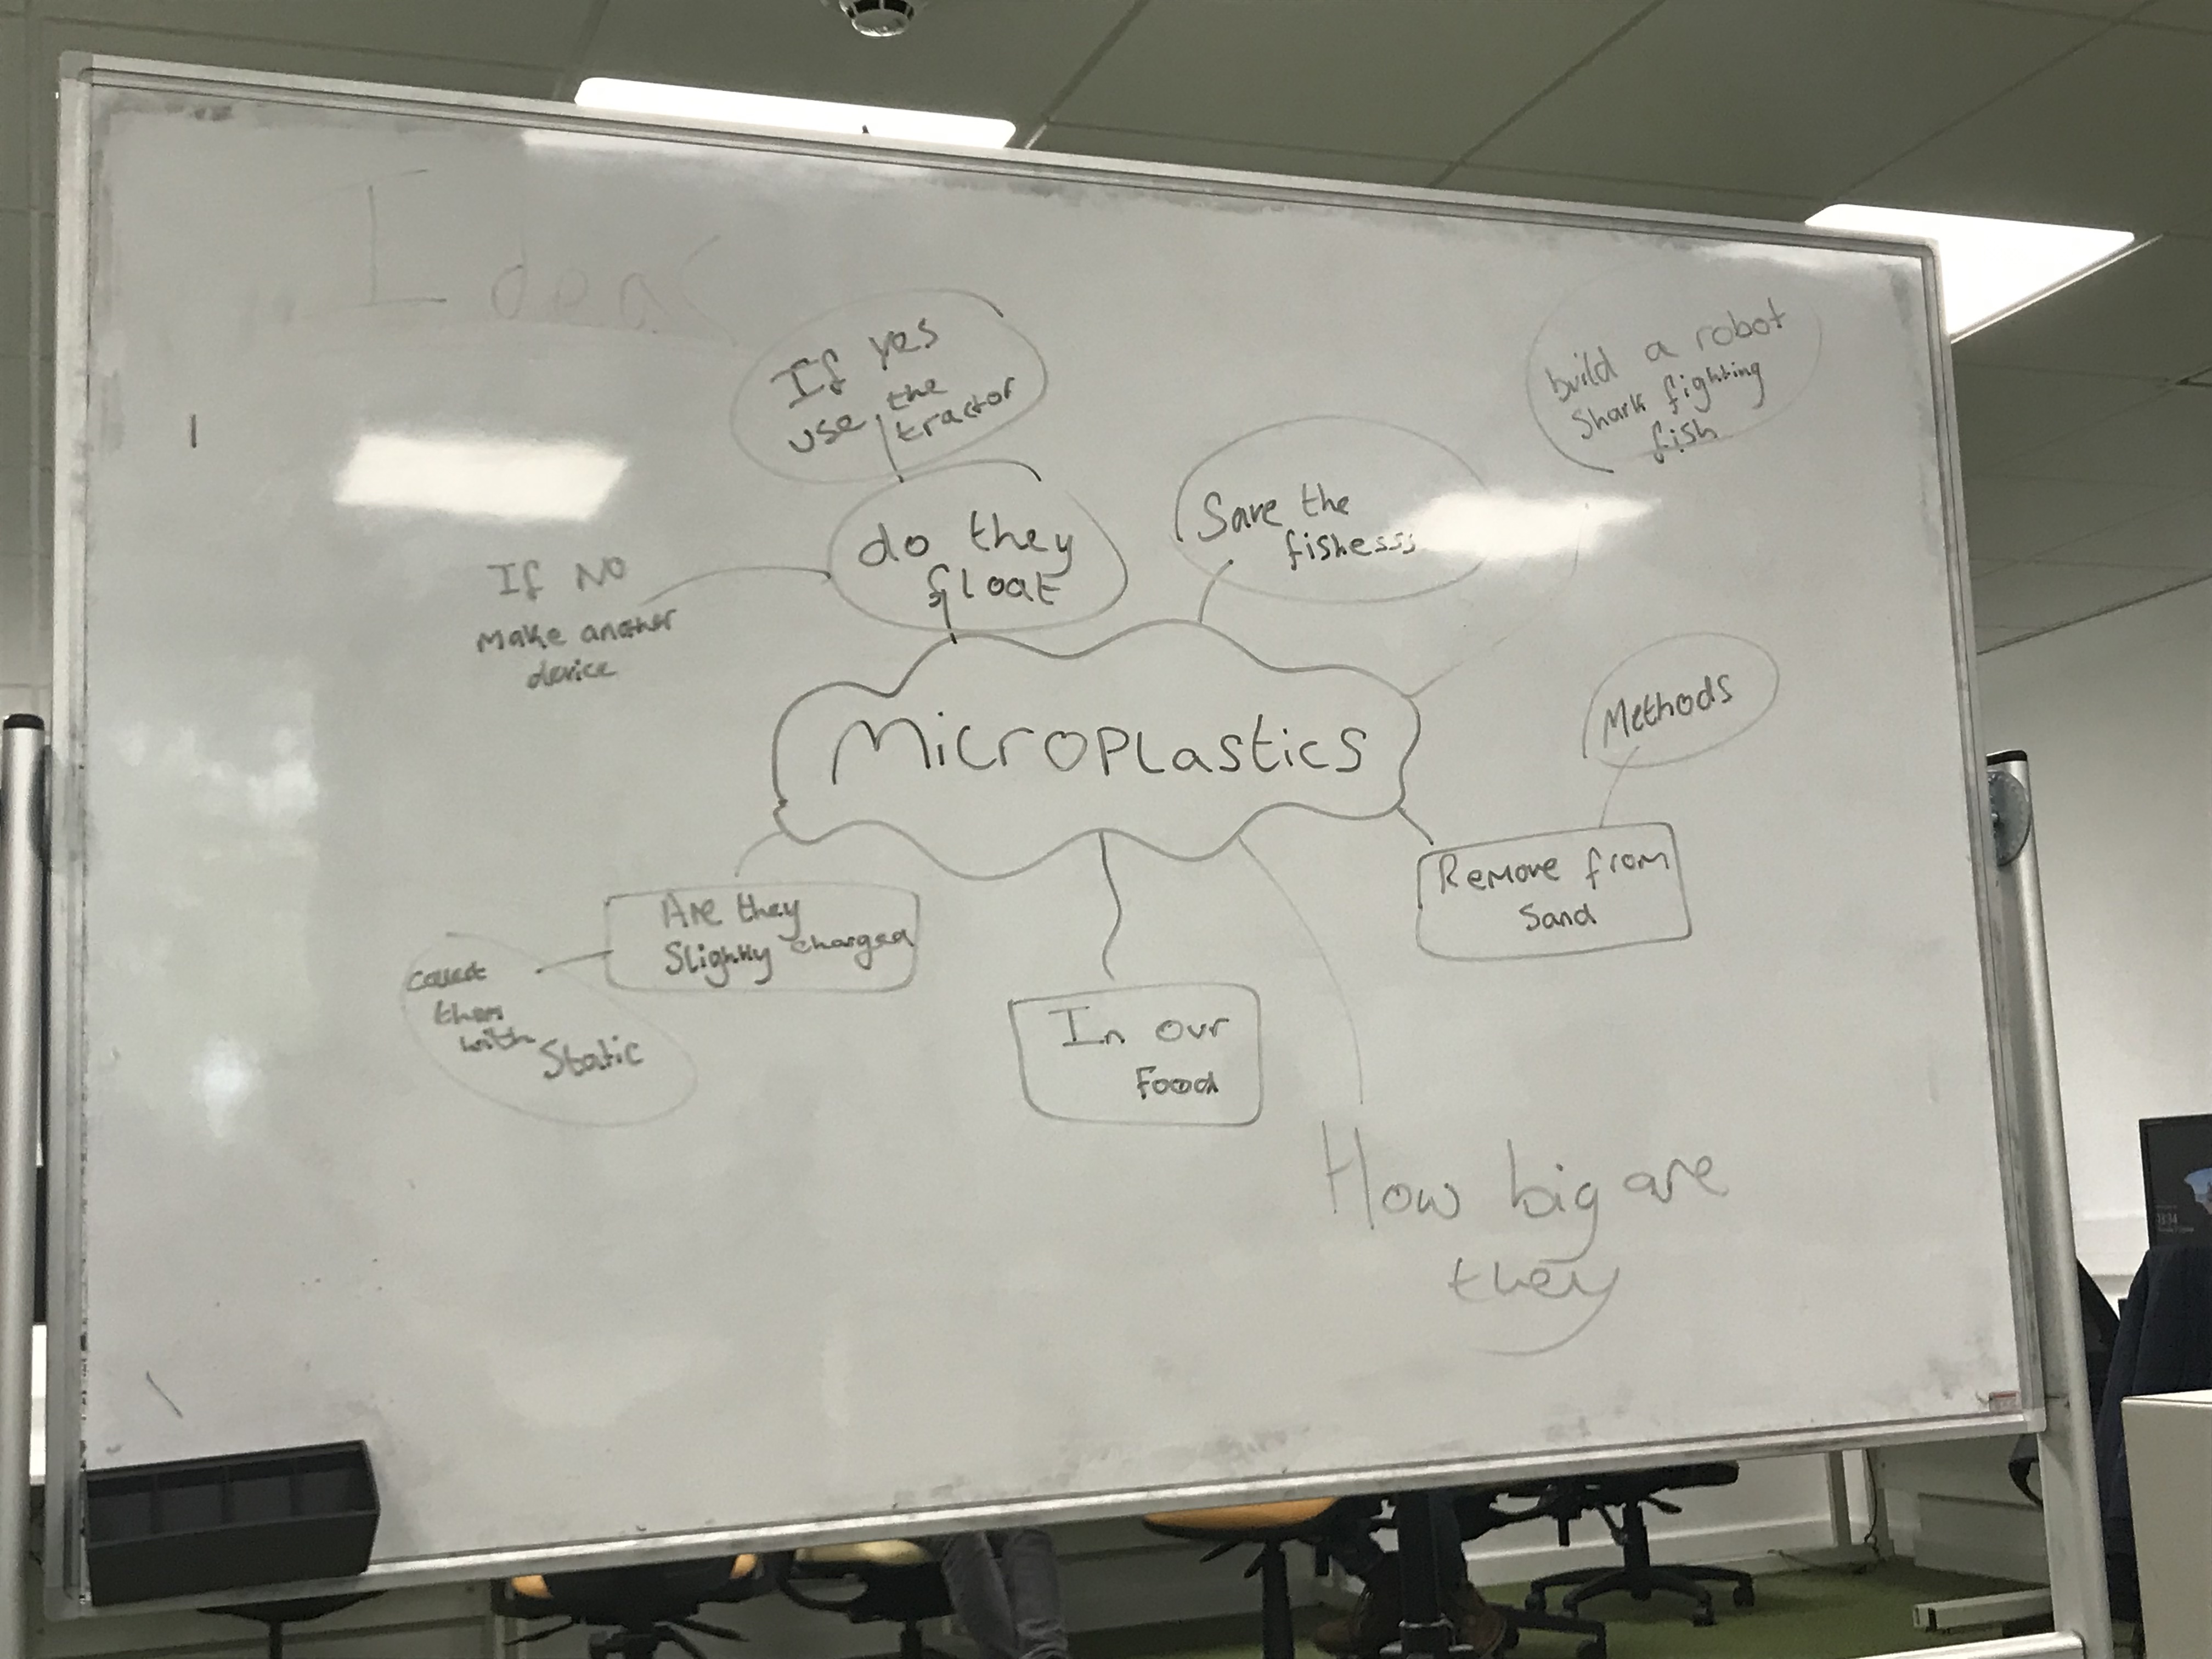 Ideas
If yes
use the
tractor
build a robot
Shark fighting
fish
Save the
fishesss
do they
float
If No
Make another
device
Microplastics
Methods
Remove from
Sand
Are they
Slightly charged
collect
them
with
Static
In our
Food
How big are
they